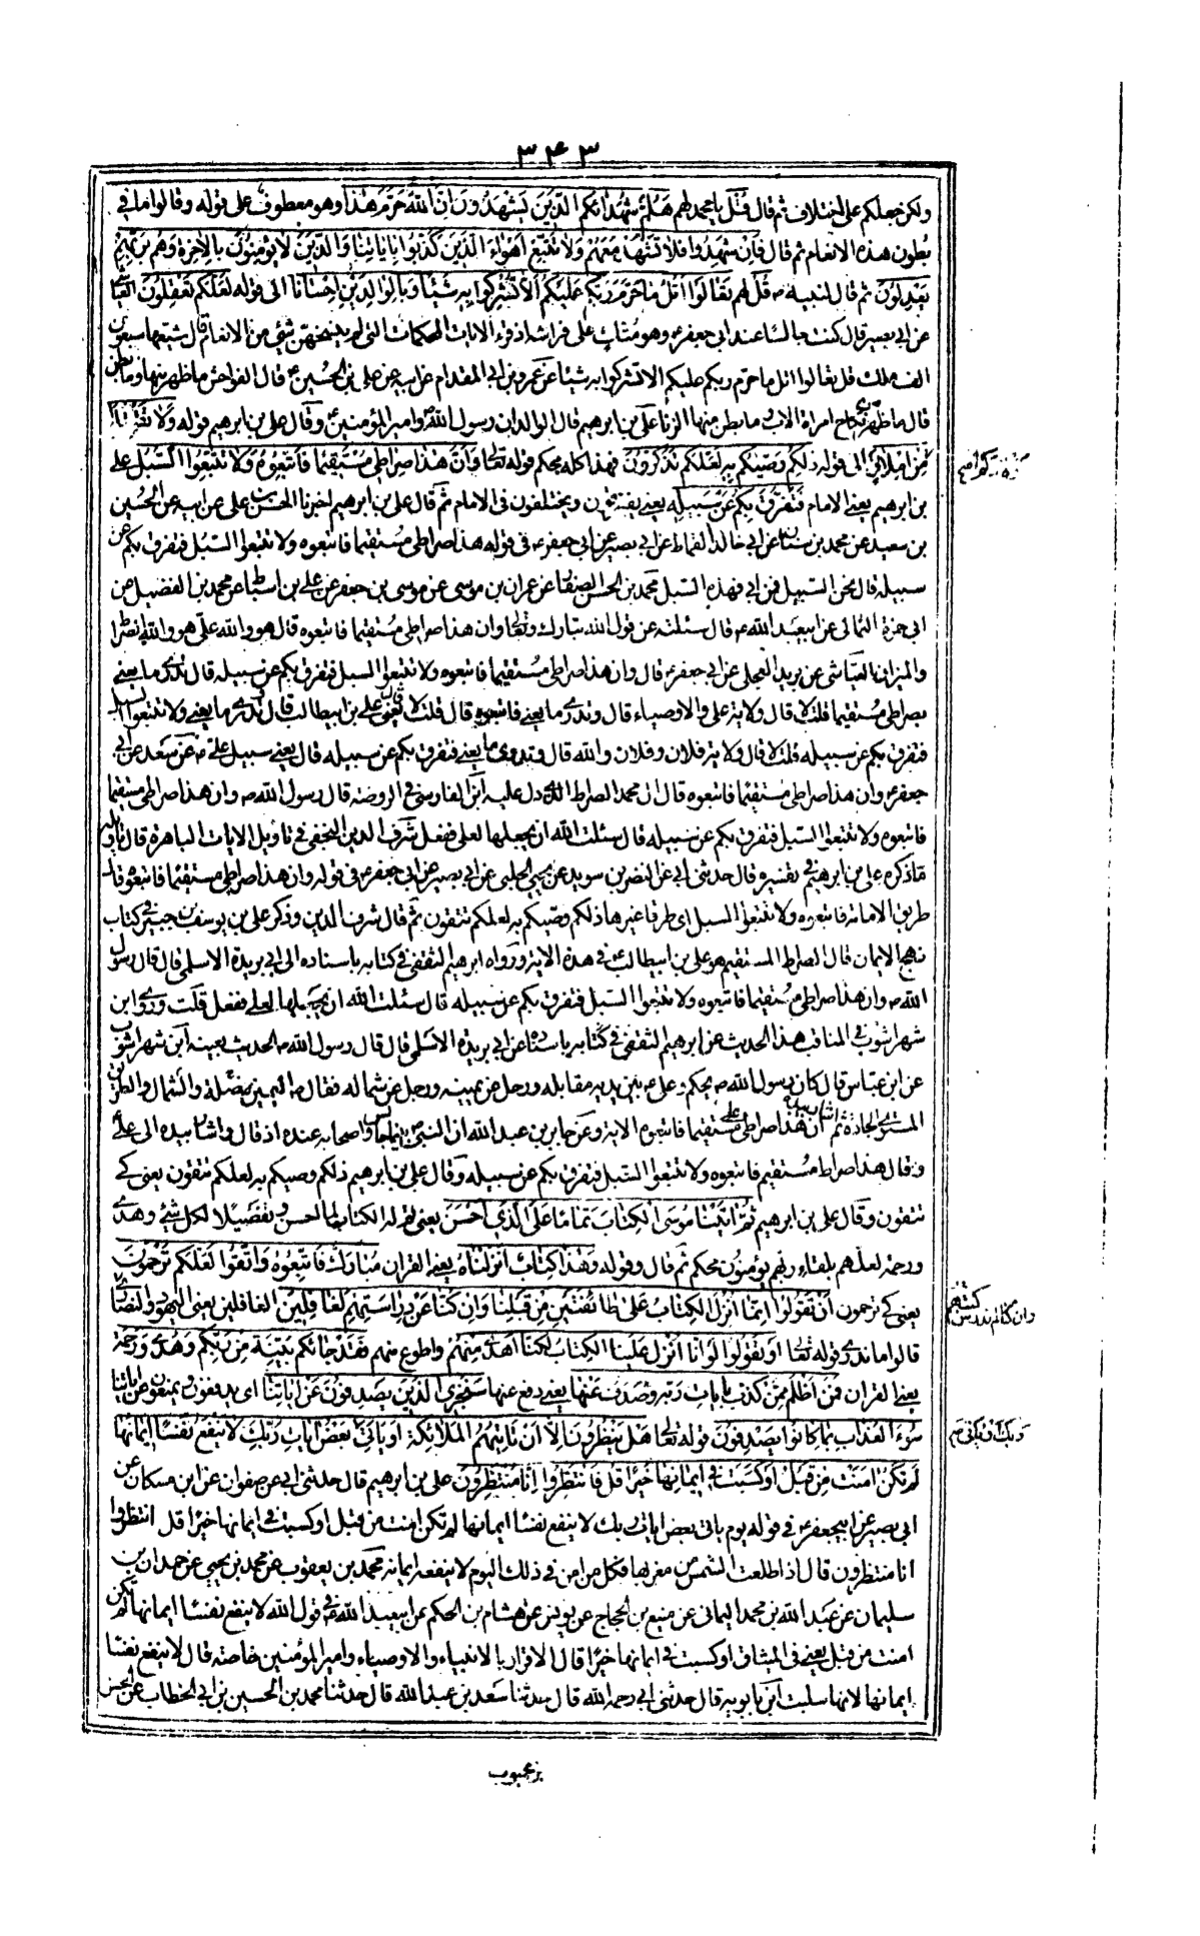 ۳۴۳
ولكن جعلكم على اختلاف ثم قال قُلْ يا محمد لهم هَلُمَّ شُهَدَائَكُمُ الَّذِينَ يَشْهَدُونَ اَنَّ اللّٰهَ حَرَّمَ هٰذَا وهو معطوف على قوله وقالوا ما فى
بُطون هذه الانعام ثم قال فَاِنْ شَهِدُوا فَلا تَشْهَدْ مَعَهُمْ وَلا تَتَّبِعْ اَهْوَاءَ الَّذِينَ كَذَّبُوا بِاٰيَاتِنَا وَالَّذِينَ لا يُؤْمِنُونَ بِالاٰخِرَةِ وَهُمْ بِرَبِّهِمْ
يَعْدِلُونَ ثم قال لنبيه ص قُلْ لهم تَعَالَوْا اَتْلُ مَا حَرَّمَ رَبُّكُمْ عَلَيْكُمْ اَلاَّ تُشْرِكُوا بِهِ شَيْئًا وَبِالْوَالِدَيْنِ اِحْسَانًا الى قوله لَعَلَّكُمْ تَعْقِلُونَ العياشى
عن ابى بصير قال كنت جالسا عند ابى جعفر ع وهو متاك على فراشه اذ قرء الايات المحكمات التى لم ينسخهن شئ من الانعام قال شيعها سبعون
الف ملك قل تعالوا اتل ما حرم ربكم عليكم الا تشركوا به شيئا عن عمرو بن ابى المقدام عن ابيه عن على بن الحسين ع قال الفواحش ما ظهر منها وما بطن
قال ما ظهر نكاح امراة الاب وما بطن منها الزنا على بن ابرهيم قال الوالدان رسول الله ص وامير المؤمنين ع وقال على بن ابرهيم قوله وَلا تَقْتُلُوا
مِنْ اِمْلاقٍ الى قوله ذٰلِكُمْ وَصّٰيكُمْ بِهِ لَعَلَّكُمْ تَذَكَّرُونَ فهذا كله محكم قوله تعالى وَاَنَّ هٰذَا صِرَاطِى مُسْتَقِيمًا فَاتَّبِعُوهُ وَلا تَتَّبِعُوا السُّبُلَ على
بن ابرهيم يعنى الامام فَتَفَرَّقَ بِكُمْ عَنْ سَبِيلِهِ يعنى يفترقون ويختلفون فى الامام ثم قال على بن ابرهيم اخبرنا الحسن بن على عن ابيه عن الحسين
بن سعيد عن محمد بن سنان عن ابى خالد القماط عن ابى بصير عن ابى جعفر ع فى قوله هذا صراطى مستقيما فاتبعوه ولا تتبعوا السبل فتفرق بكم عن
سبيله قال نحن السبيل فمن ابى فهذه السبل محمد بن الحسن الصفار عن عمران بن موسى عن موسى بن جعفر عن على بن اسباط عن محمد بن الفضيل عن
ابى حمزة الثمالى عن ابيعبد الله ع قال سئلته عن قول الله تبارك وتعالى وان هذا صراطى مستقيما فاتبعوه قال هو والله على هو والله الصراط
والميزان العياشى عن بريد العجلى عن ابى جعفر ع قال وان هذا صراطى مستقيما فاتبعوه ولا تتبعوا السبل فتفرق بكم عن سبيله قال تدرى ما يعنى
بصراطى مستقيما قلت لا قال ولاية على والاوصياء قال وتدرى ما يعنى فاتبعوه قال قلت لا قال يعنى على بن ابيطالب قال وتدرى ما يعنى ولا تتبعوا السبل
فتفرق بكم عن سبيله قلت لا قال ولاية فلان وفلان والله قال وتدرى ما يعنى فتفرق بكم عن سبيله قال يعنى سبيل على ع عن سعد عن ابى
جعفر ع وان هذا صراطى مستقيما فاتبعوه قال ال محمد الصراط الذى دل عليه ابن الفارسى فى الروضة قال رسول الله ص وان هذا صراطى مستقيما
فاتبعوه ولا تتبعوا السبل فتفرق بكم عن سبيله قال سئلت الله ان يجعلها لعلى ففعل شرف الدين النجفى فى تاويل الايات الباهرة قال تاويله
ما ذكره على بن ابرهيم فى تفسيره قال حدثنى ابى عن النضر بن سويد عن يحيى الحلبى عن ابى بصير عن ابى جعفر ع فى قوله وان هذا صراطى مستقيما فاتبعوه قال
طريق الامامة فاتبعوه ولا تتبعوا السبل اى طرقا غيرها ذلكم وصيكم به لعلكم تتقون ثم قال شرف الدين وذكر على بن يوسف بن جبير فى كتاب
نهج الايمان قال الصراط المستقيم هو على بن ابيطالب فى هذه الاية ورواه ابرهيم الثقفى فى كتابه باسناده الى ابى بريدة الاسلمى قال قال رسول
الله ص وان هذا صراطى مستقيما فاتبعوه ولا تتبعوا السبل فتفرق بكم عن سبيله قال سئلت الله ان يجعلها لعلى ففعل قلت وروى ابن
شهراشوب فى المناقب هذا الحديث عن ابرهيم الثقفى فى كتابه باسناده عن ابى بريدة الاسلمى قال قال رسول الله ص الحديث بعينه ابن شهراشوب
عن ابن عباس قال كان رسول الله ص يحكم وعلى ع بين يديه مقابله ورجل عن يمينه ورجل عن شماله فقال ص اليمين مضلة والشمال مضلة والطريق
المستوى الجادة ثم اشار بيده ان هذا صراطى على مستقيما فاتبعوه الاية وعن جابر بن عبد الله ان النبى ص بينما جالس واصحابه عنده اذ قال واشار بيده الى على
وقال هذا صراط مستقيم فاتبعوه ولا تتبعوا السبل فتفرق بكم عن سبيله وقال على بن ابرهيم ذلكم وصيكم به لعلكم تتقون يعنى كى
تتقون وقال على بن ابرهيم ثُمَّ اٰتَيْنَا مُوسَى الْكِتَابَ تَمَامًا عَلَى الَّذِى اَحْسَنَ يعنى تم له الكتاب لما احسن وَتَفْصِيلاً لكل شئ وهدى
ورحمة لعلهم بلقاء ربهم يؤمنون محكم ثم قال وقوله وَهٰذَا كِتَابٌ اَنْزَلْنَاهُ يعنى القران مُبَارَكٌ فَاتَّبِعُوهُ وَاتَّقُوا لَعَلَّكُمْ تُرْحَمُونَ
يعنى كى ترحمون اَنْ تَقُولُوا اِنَّمَا اُنْزِلَ الْكِتَابُ عَلٰى طَائِفَتَيْنِ مِنْ قَبْلِنَا وَاِنْ كُنَّا عَنْ دِرَاسَتِهِمْ لَغَافِلِينَ الغافلين يعنى اليهود والنصارى
وان كنا لم ندرس كتبهم
قالوا ما ندرى قوله تعالى اَوْ تَقُولُوا لَوْ اَنَّا اُنْزِلَ عَلَيْنَا الْكِتَابُ لَكُنَّا اَهْدٰى مِنْهُمْ واطوع منهم فَقَدْ جَائَكُمْ بَيِّنَةٌ مِنْ رَبِّكُمْ وَهُدًى وَرَحْمَةٌ
يعنى القران فَمَنْ اَظْلَمُ مِمَّنْ كَذَّبَ بِاٰيَاتِ ربه وَصَدَفَ عَنْهَا يعنى دفع عنها سَنَجْزِى الَّذِينَ يَصْدِفُونَ عَنْ اٰيَاتِنَا اى يدفعون ويمنعون عن اياتنا
سُوءَ الْعَذَابِ بِمَا كَانُوا يَصْدِفُونَ قوله تعالى هَلْ يَنْظُرُونَ اِلاَّ اَنْ تَأْتِيَهُمُ الْمَلائِكَةُ اَوْ يَأْتِىَ بَعْضُ اٰيَاتِ رَبِّكَ لا يَنْفَعُ نَفْسًا اِيمَانُهَا
لَمْ تَكُنْ اٰمَنَتْ مِنْ قَبْلُ اَوْ كَسَبَتْ فِى اِيمَانِهَا خَيْرًا قُلِ انْتَظِرُوا اِنَّا مُنْتَظِرُونَ على بن ابرهيم قال حدثنى ابى عن صفوان عن ابن مسكان عن
ابى بصير عن ابيجعفر ع فى قوله يوم ياتى بعض ايات ربك لا ينفع نفسا ايمانها لم تكن امنت من قبل او كسبت فى ايمانها خيرا قل انتظروا
انا منتظرون قال اذا طلعت الشمس من مغربها فكل من امن فى ذلك اليوم لا ينفعه ايمانه محمد بن يعقوب عن محمد بن يحيى عن حمدان بن
سليمان عن عبد الله بن محمد اليمانى عن منيع بن الحجاج عن يونس عن هشام بن الحكم عن ابيعبد الله ع فى قول الله لا ينفع نفسا ايمانها لم تكن
امنت من قبل يعنى فى الميثاق او كسبت فى ايمانها خيرا قال الاقرار بالانبياء والاوصياء وامير المؤمنين خاصة قال لا ينفع نفسا
ايمانها لانها سلبت ابن بابويه قال حدثنى ابى رحمه الله قال حدثنا سعد بن عبد الله قال حدثنا محمد بن الحسين بن ابى الخطاب عن الحسن
بن محبوب